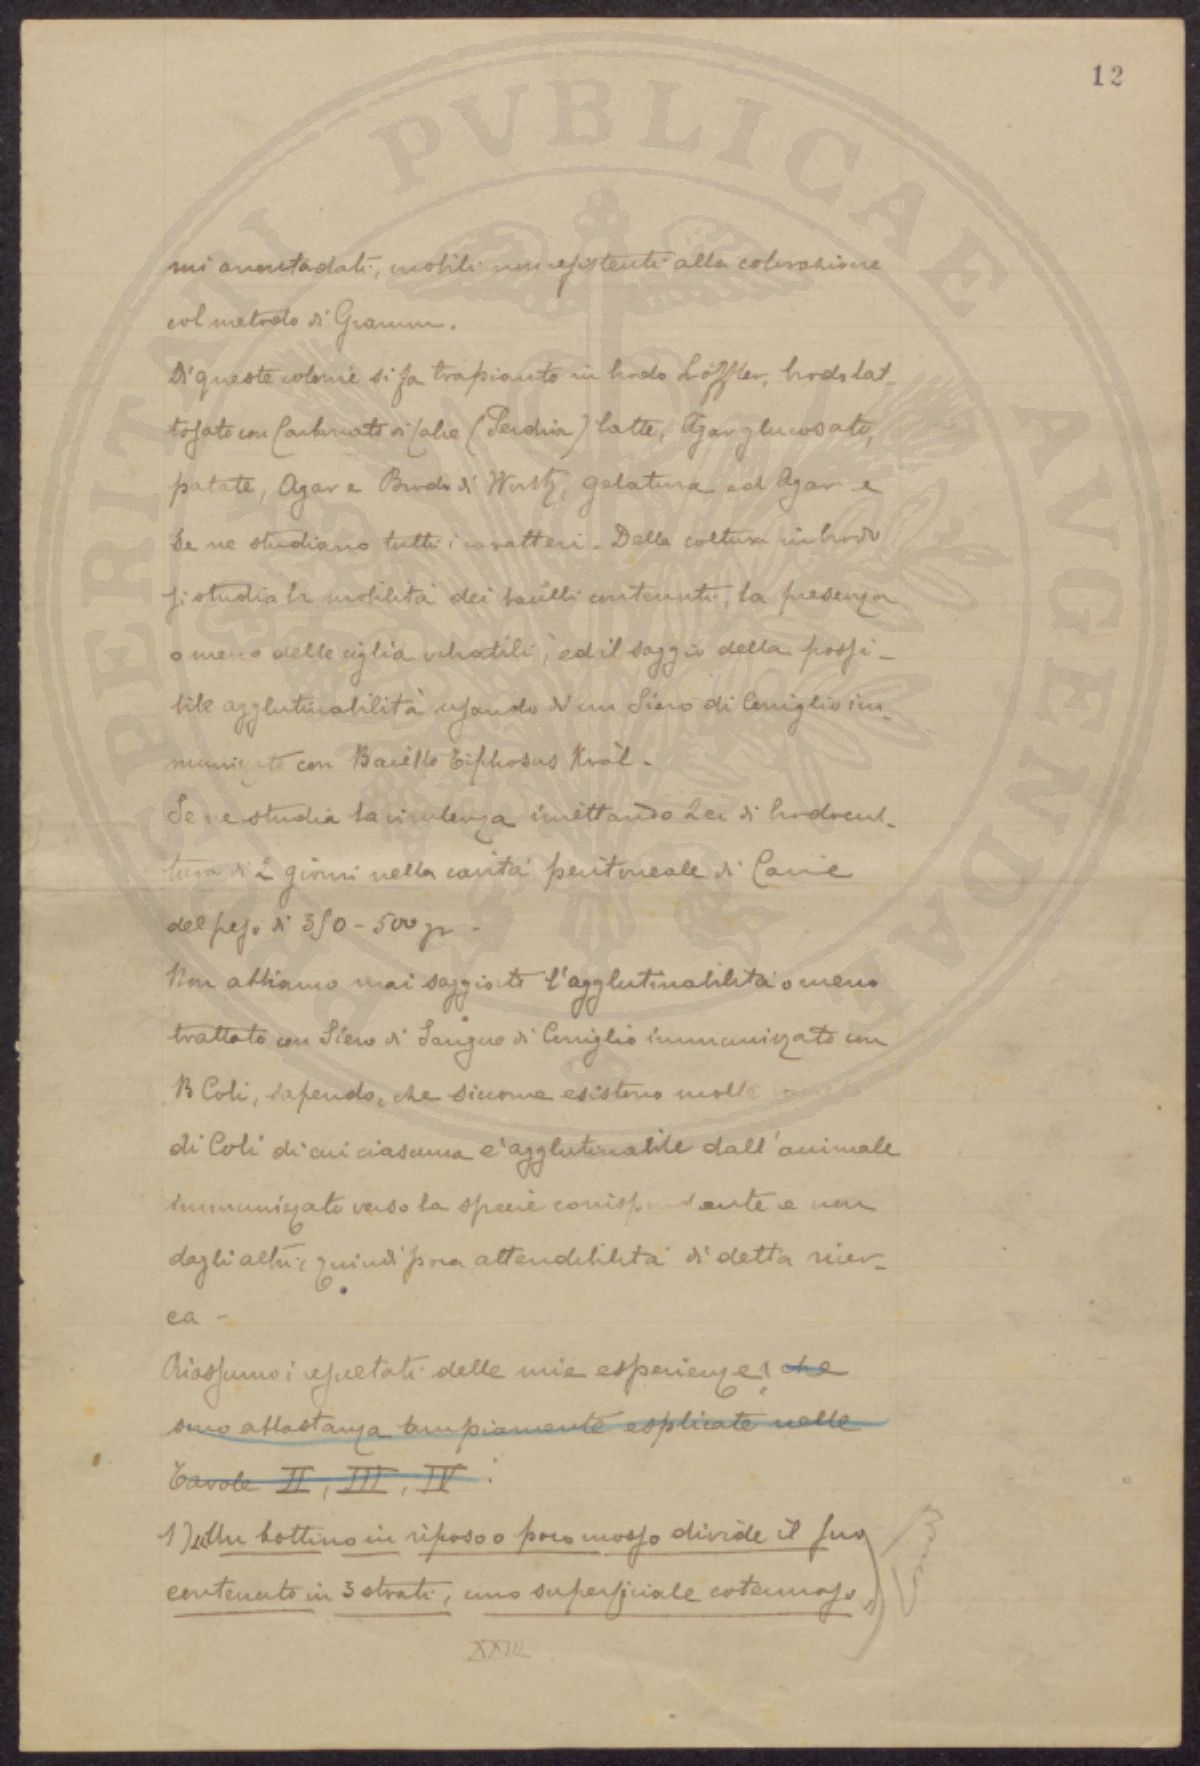 12
mi arrotondati, mobili non resistenti alla colorazione
col metodo di Gramm.
Di queste colonie si fa trapianto in brodo Löffler, brodo lat-
tosato con Carbonato di Calce (Perdrix) latte, Agar glucosato,
patate, Agar e Brodo di Wurtz, gelatina ed Agar e
se ne studiano tutti i caratteri. Della coltura in brodo
si studia la mobilità dei bacilli contenuti, la presenza
o meno delle ciglia vibratili, ed il saggio della possi-
bile agglutinabilità usando di un Siero di Coniglio im-
munizzato con Bacillo Tiphosus Král.
Se ne studia la virulenza iniettando 2 cc di brodocul-
tura di 2 giorni nella cavità peritoneale di Cavie
del peso di 350-500 gr.
Non abbiamo mai saggiato l'agglutinabilità o meno
trattato con Siero di Sangue di Coniglio immunizzato con
B Coli, sapendo, che siccome esistono molte
di Coli di cui ciascuna è agglutinabile dall'animale
immunizzato verso la specie corrispondente e non
dagli altri, quindi poca attendibilità di detta ricer-
ca -
Riassumo i resultati delle mie esperienze: che
sono abbastanza ampiamente esplicate nelle
Tavole II, III, IV:
1) Un bottino in riposo o poco mosso divide il suo
contenuto in 3 strati, uno superficiale cotennoso,
XXIII